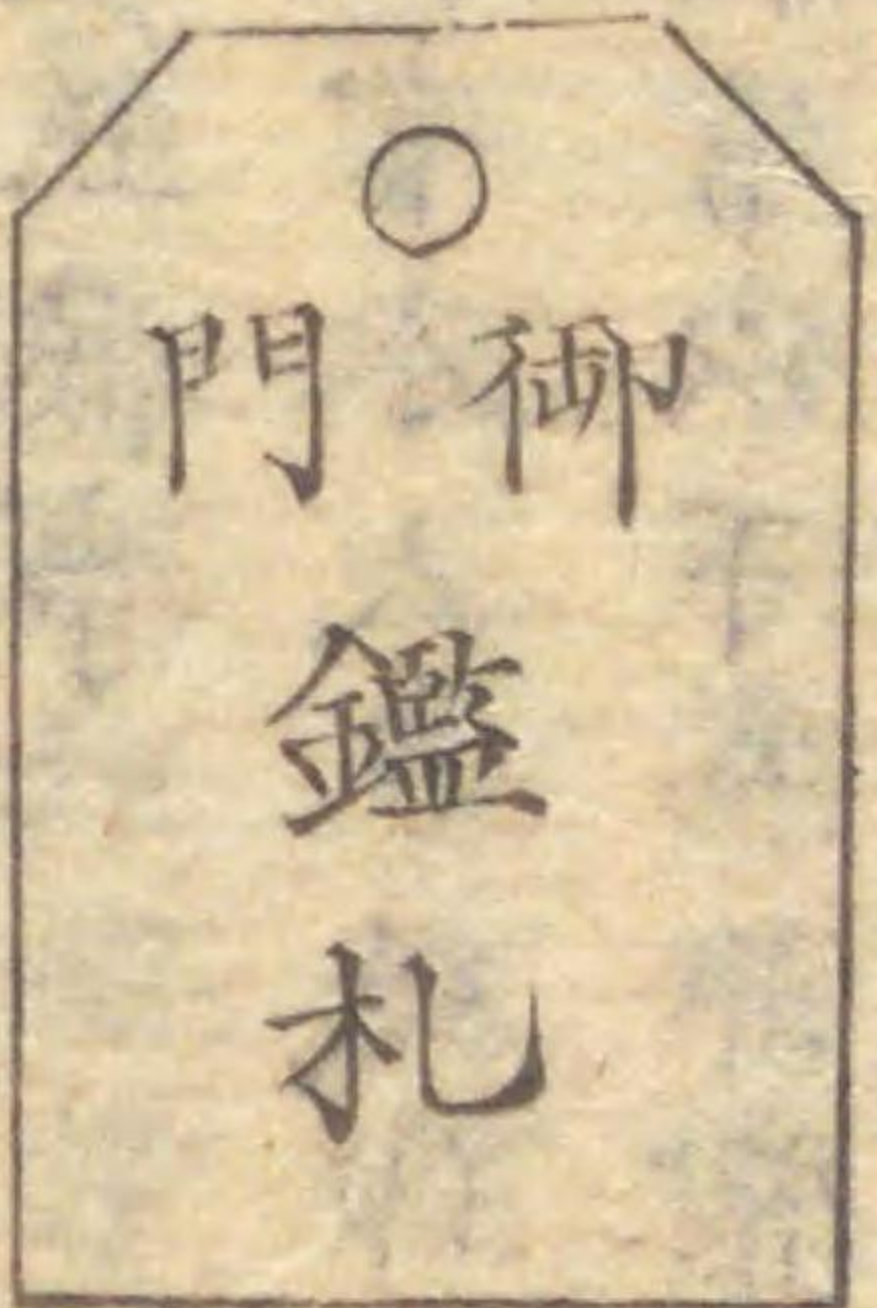 御門
鑑
札